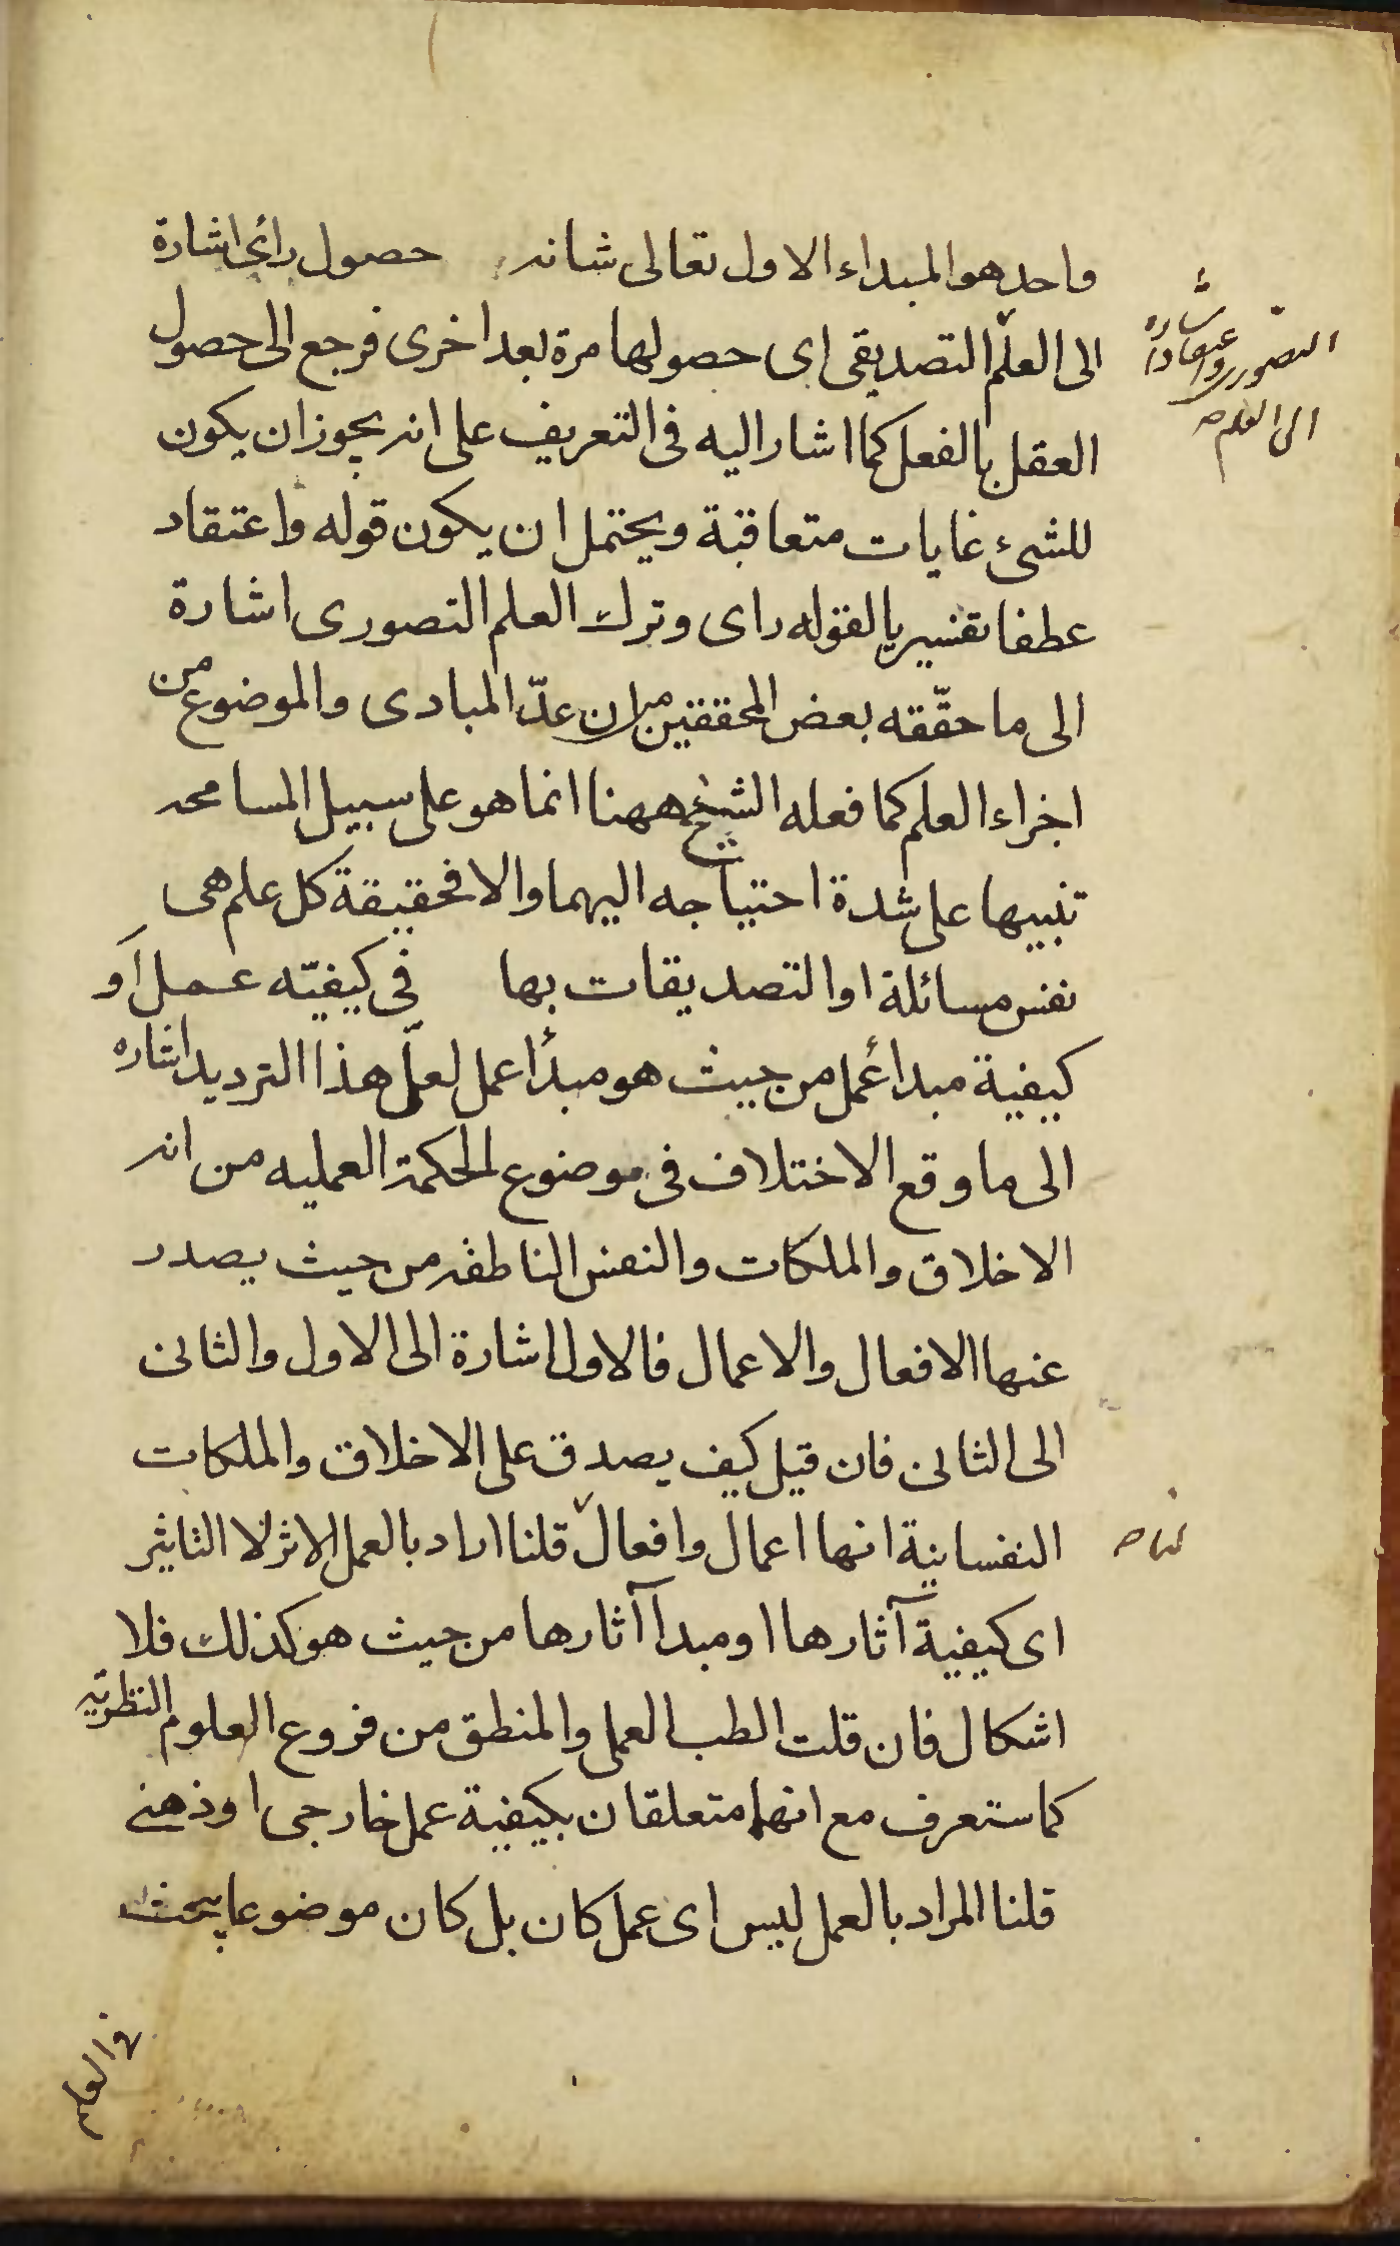 واحد هو المبداء الاول تعالى شانه حصول رائ اشارة
الى العلم التصديقى اى حصولها مرة بعد اخرى فرجع الى حصول
التصورى واعتقاد اشارة
الى العلم صح
العقل بالفعل كما اشار اليه فى التعريف على انه يجوز ان يكون
للشئ غايات متعاقبة ويحتمل ان يكون قوله واعتقاد
عطفا تفسيريا لقوله راى وترك العلم التصورى اشارة
الى ما حقّقه بعض المحققين من ان عدّ المبادى والموضوع من
اجزاء العلم كما فعله الشيخ ههنا انما هو على سبيل المسامحه
تنبيها على شدة احتياجه اليهما والا فحقيقة كل علم هى
نفس مسائلة او التصديقات بها فى كيفيّه عمل او
كيفية مبدأ عمل من حيث هو مبدأ عمل لعلّ هذا الترديد اشاره
الى ما وقع الاختلاف فى موضوع الحكمة العمليه من انه
الاخلاق والملكات والنفس الناطقه من حيث يصدر
عنها الافعال والاعمال فالاول اشارة الى الاول والثانى
الى الثانى فان قيل كيف يصدق على الاخلاق والملكات
النفسانية انها اعمال وافعال قلنا اراد بالعمل الاثر لا التاثير
اى كيفية آثارها او مبدا آثارها من حيث هو كذلك فلا
اشكال فان قلت الطب العملى والمنطق من فروع العلوم النظريّه
كما ستعرف مع انهما متعلقان بكيفية عمل خارجى او ذهنى
قلنا المراد بالعمل ليس اى عمل كان بل كان موضوعا يبحث
فى العلم